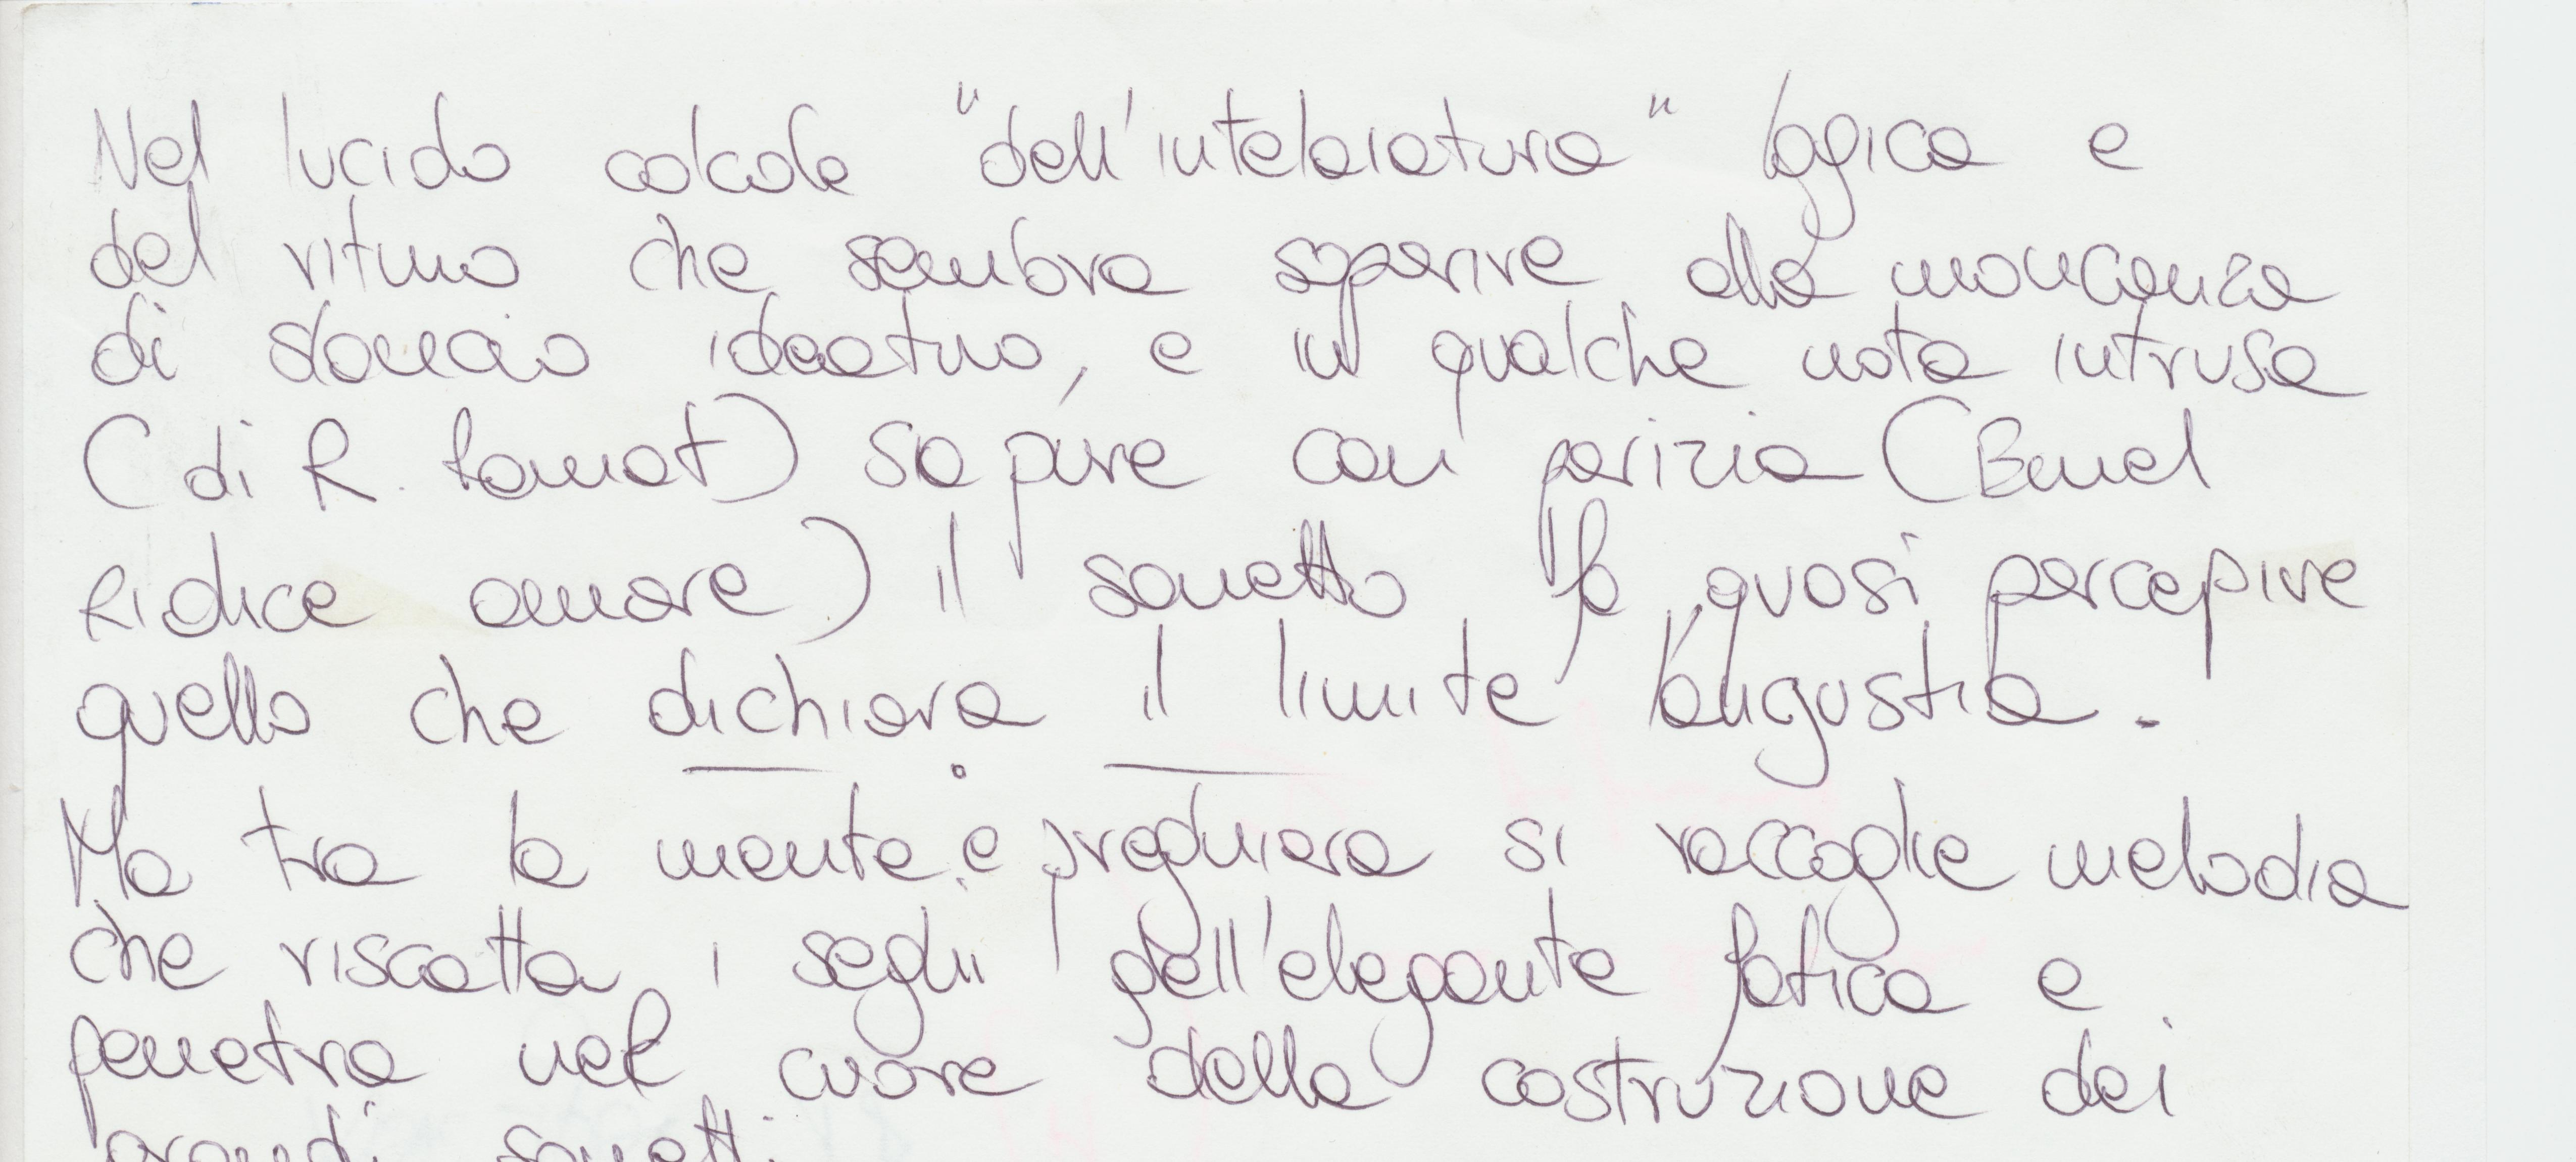 Nel lucido calcolo "dell'intelaiatura" logica e
del ritmo che sembra soperire alla mancanza
di slancio ideativo, e in qualche nota intrusa
(di R. Lamat) sia pure con perizia (
Ridice amore) il sonetto fa quasi percepire
quello che dichiara il limite l'angustia.
Ma tra la mente e preghiera si raccoglie melodia
che riscatta i segni dell'elegante fatica e
penetra nel cuore della costruzione dei
grandi sonetti